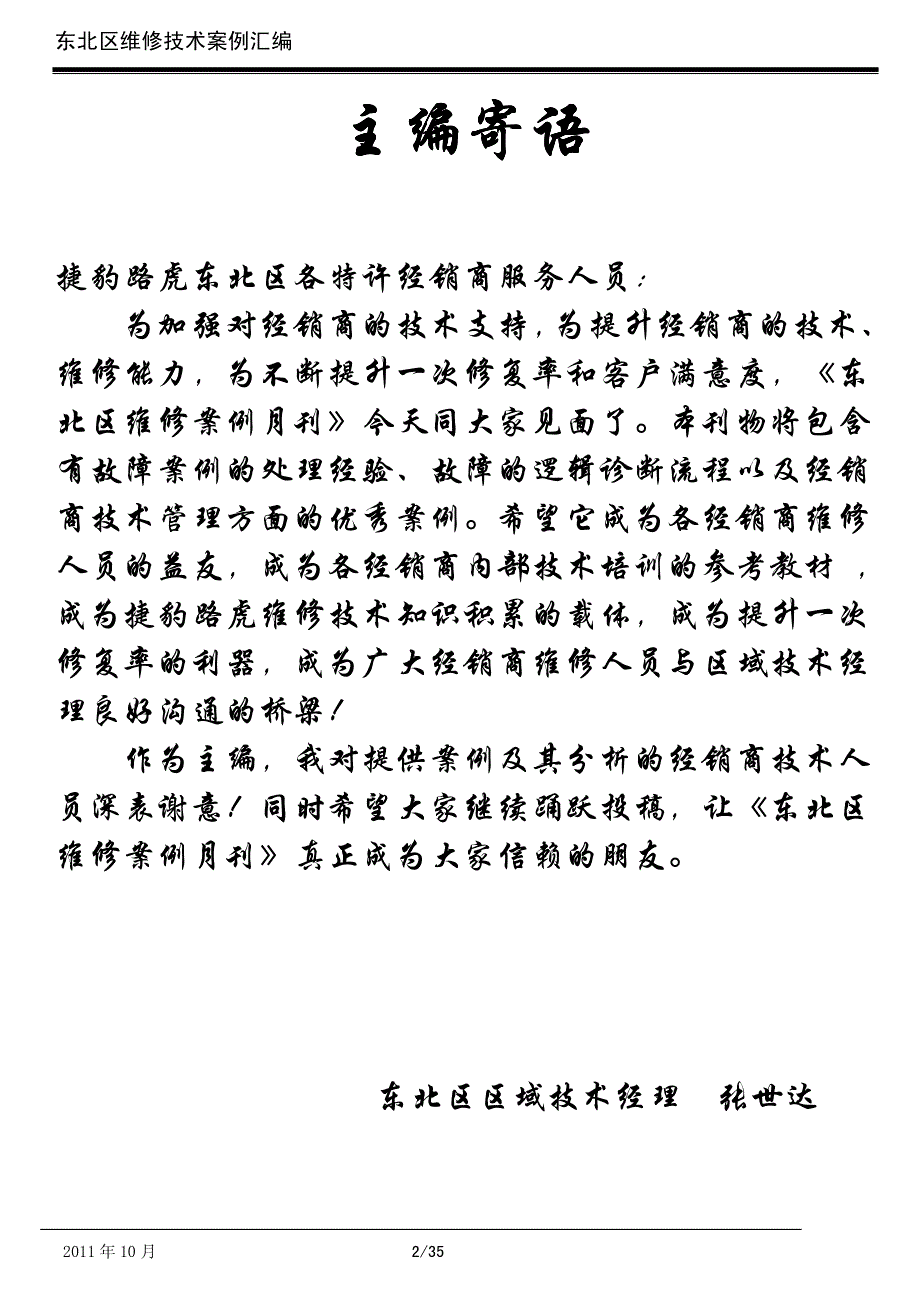 东北区维修技术案例汇编
主编寄语
捷豹路虎东北区各特许经销商服务人员：
为加强对经销商的技术支持，为提升经销商的技术、
维修能力，为不断提升一次修复率和客户满意度，《东
北区维修案例月刊》今天同大家见面了。本刊物将包含
有故障案例的处理经验、故障的逻辑诊断流程以及经销
商技术管理方面的优秀案例。希望它成为各经销商维修
人员的益友，成为各经销商内部技术培训的参考教材，
成为捷豹路虎维修技术知识积累的载体，成为提升一次
修复率的利器，成为广大经销商维修人员与区域技术经
理良好沟通的桥梁！
作为主编，我对提供案例及其分析的经销商技术人
员深表谢意！同时希望大家继续踊跃投稿，让《东北区
维修案例月刊》真正成为大家信赖的朋友。
东北区区域技术经理 张世达
2011 年 10 月 2/35